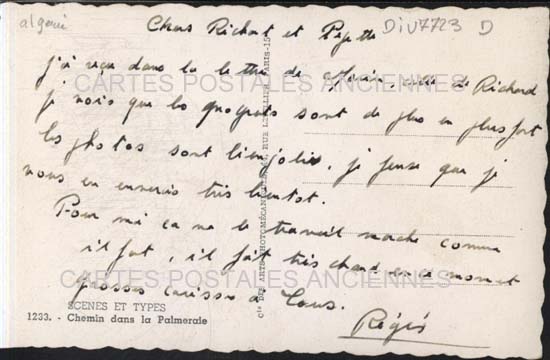 algerie
DiV7723 D
Chers Richard et Pepette
j'ai reçu dans la lettre de celle de Richard
je vois que les progrets sont de plus en plus fort
les photos sont bien jolies, je pense que je
vous en enverrais très bientot.
Pour moi ça va le travail marche comme
il faut, il fait très chaud en ce moment
grosses caresses a Tous.
Régis
CARTES POSTALES ANCIENNES
CARTES POSTALES ANCIENNES
SCENES ET TYPES
1233. - Chemin dans la Palmeraie
Cie DES ARTS PHOTOMÉCANIQUES, RUE PARIS-15